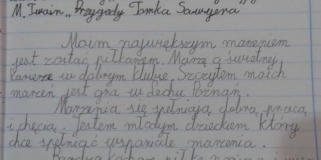 M. Twain „Przygody Tomka Sawyera"
Moim największym marzeniem
jest zostać piłkarzem. Marzę o świetnej
karierze w dobrym klubie. Szczytem moich
marzeń jest gra w Lechu Poznań.
Marzenia się spełniają dobrą pracą
i chęcią. Jestem młodym dzieckiem który
chce spełniać wspaniałe marzenia.
Bardzo kocham piłkę nożną i